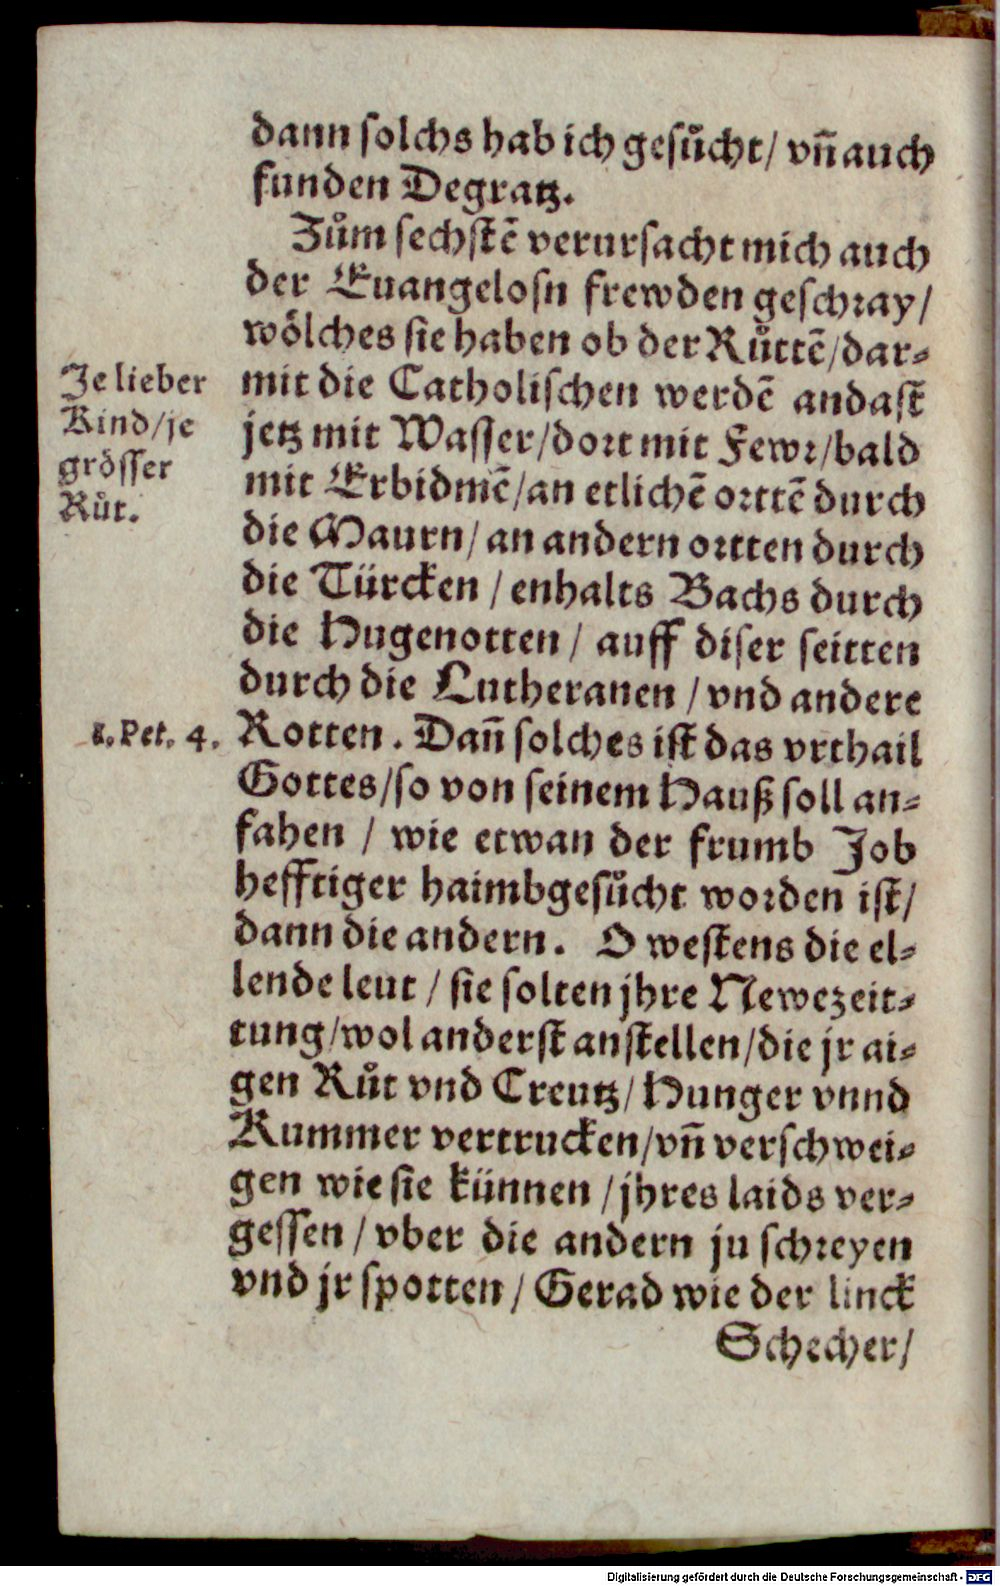 dann solchs hab ich gesůcht/ vñ auch
funden Degratz.
Zům sechstẽ verursacht mich auch
der Euangelosn frewden geschray/
wölches sie haben ob der Růttẽ/dar-
mit die Catholischen werdẽ andast
jetz mit Wasser/dort mit Fewr/bald
mit Erbidmẽ/an etlichẽ orttẽ durch
die Maurn/an andern ortten durch
die Türcken/enhalts Bachs durch
die Hugenotten/ auff diser seitten
durch die Lutheranen/vnd andere
Rotten. Dañ solches ist das vrthail
Gottes/so von seinem Hauß soll an-
fahen / wie etwan der frumb Job
hefftiger haimbgesůcht worden ist/
dann die andern. O westens die el-
lende leut/ sie solten jhre Newezeit-
tung/wol anderst anstellen/die jr ai-
gen Růt vnd Creutz/Hunger vnnd
Kummer vertrucken/vñ verschwei-
gen wie sie künnen/jhres laids ver-
gessen/ vber die andern ju schreyen
vnd jr spotten/ Gerad wie der linck
Schecher/
Je lieber
Kind/je
grösser
Růt.
1. Pet. 4.
Digitalisierung gefördert durch die Deutsche Forschungsgemeinschaft - DFG